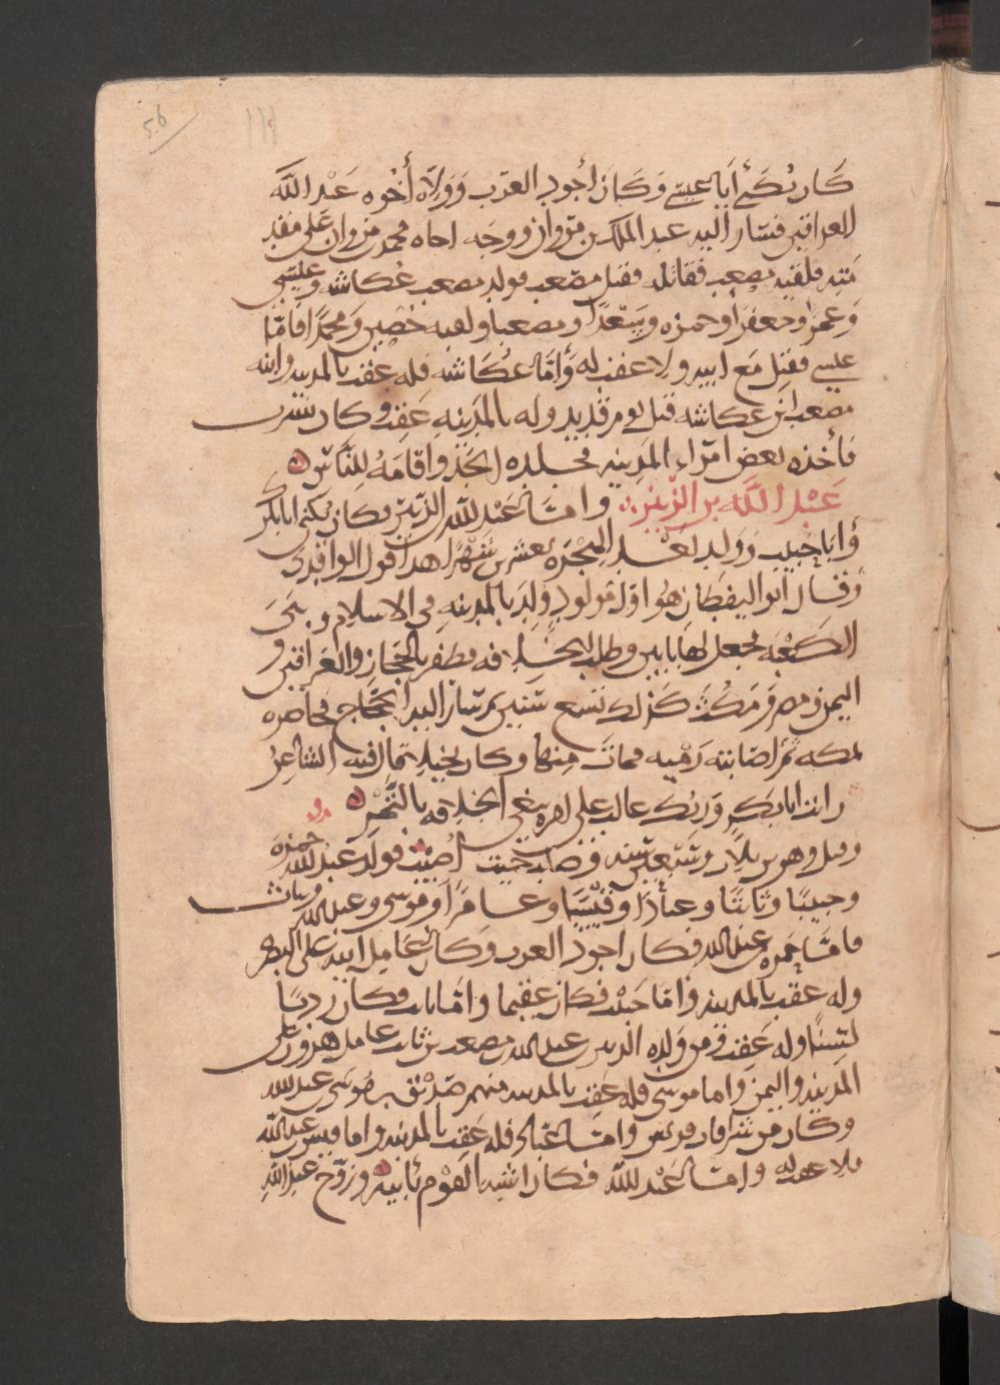 56
١١١
كان يكنى أبا عيسى وكان أجود العرب وولاه أخوه عبد الله
العراقين فسار اليه عبد الملك بن مروان ووجه اخاه محمد بن مروان على مقد
مته فلقيه مصعب فقاتله فقتل مصعب فولد مصعب عكاشه وعيسى
وعمرا وجعفرا وحمزه وسعدا ومصعبا ولقبه خضير ومحمدا فاما
عيسى فقتل مع ابيه ولا عقب له وأما عكاشه فله عقب بالمدينه وابنه
مصعب ابن عكاشه قتل يوم قديد وله بالمدينه عقب وكان يشرب
فأخذه بعض امراء المدينه فجلده الحد واقامه للناس
عبد الله بن الزبير واما عبد الله بن الزبير فكان يكنى ابا بكر
وأبا خبيب وولد بعد الهجره بعشرين شهرا هذا قول الواقدى
وقال ابو اليقظان هو اول مولود ولد بالمدينه في الاسلام وبنى
الكعبه فجعل لها بابين وطلب الخلافه فظفر بالحجاز والعراقين و
اليمن ومصر ومكث كذلك تسع سنين ثم سار اليه الحجاج فحاصره
بمكه ثم اصابته رميه فمات منها وكان بخيلا فقال فيه الشاعر
رايت ابابكر وربك غالب على امره يبغى الخلافه بالتمر
وقتل وهو بن ثلاث وسبعين سنه وصلب حيث اصيب فولد عبد الله حمزه
وخبيبا وثابتا وعبادا وقيسا وعامرا وموسى وعبد الله وبنات
فاما حمزه بن عبد الله فكان اجود العرب وكان عامل ابيه على البصره
وله عقب بالمدينه وأما خبيب فكان عقيما وأما ثابت فكان
لسنا وله عقب فمن ولده الزبير بن عبد الله بن مصعب بن ثابت عامل هرون على
المدينه واليمن واما موسى فله عقب بالمدينه منهم صديق بن موسى بن عبد الله
وكان من سراه قريش واما عباد فله عقب بالمدينه واما قيس بن عبد الله
فلا عقب له واما عبد الله فكان اشبه القوم بأبيه وزوج عبد الله